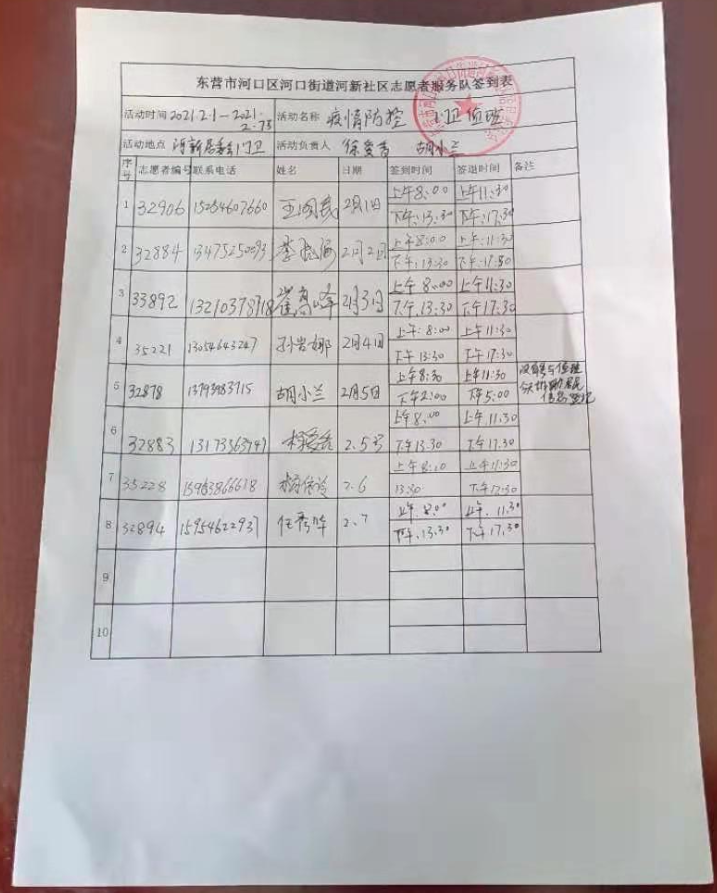 东营市河口区河口街道河新社区志愿者服务队签到表
活动时间 2021.2.1—2021. 活动名称 疫情防控 门卫值班
活动地点 河新居委门卫 活动负责人 徐爱香 胡小兰
序号 志愿者编号 联系电话 姓名 日期 签到时间 签退时间 备注
1 32906 15254607660 王国民 2月1日 上午8:00 上午11:30
下午:13:30 下午:17:30
2 32884 13475250093 2月2日 上午8:00 上午:11:30
下午:13:30 下午:17:30
3 33892 崔高峰 2月3日 上午8:00 上午11:30
下午13:30 下午17:30
4 35221 13054643247 孙岩娜 2月4日 上午:8:00 上午11:30
下午13:30 下午17:30
5 32878 13793983715 胡小兰 2月5日 上午8:30 上午11:30
下午2:00 下午5:00
6 32883 2.5号 上午8:00 上午11:30
下午13:30 下午17:30
7 35228 15963866618 2.6 上午8:00 上午11:30
13:30 下午17:30
8 32894 任秀华 2.7 上午8:00 上午11:30
下午13:30 下午17:30
9
10